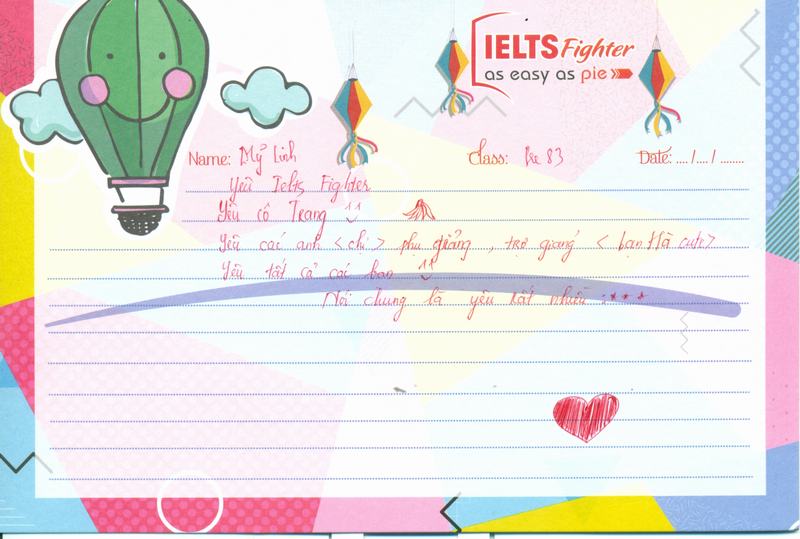 IELTS Fighter
as easy as pie
Name: Mỹ Linh Class: Pre 83 Date: .... /.... / ........
Yêu Ielts Fighter
Yêu cô Trang ^^
Yêu các anh <chị> phụ giảng , trợ giảng < bạn Hà cute>
Yêu tất cả các bạn ^^
Nói chung là yêu rất nhiều :***